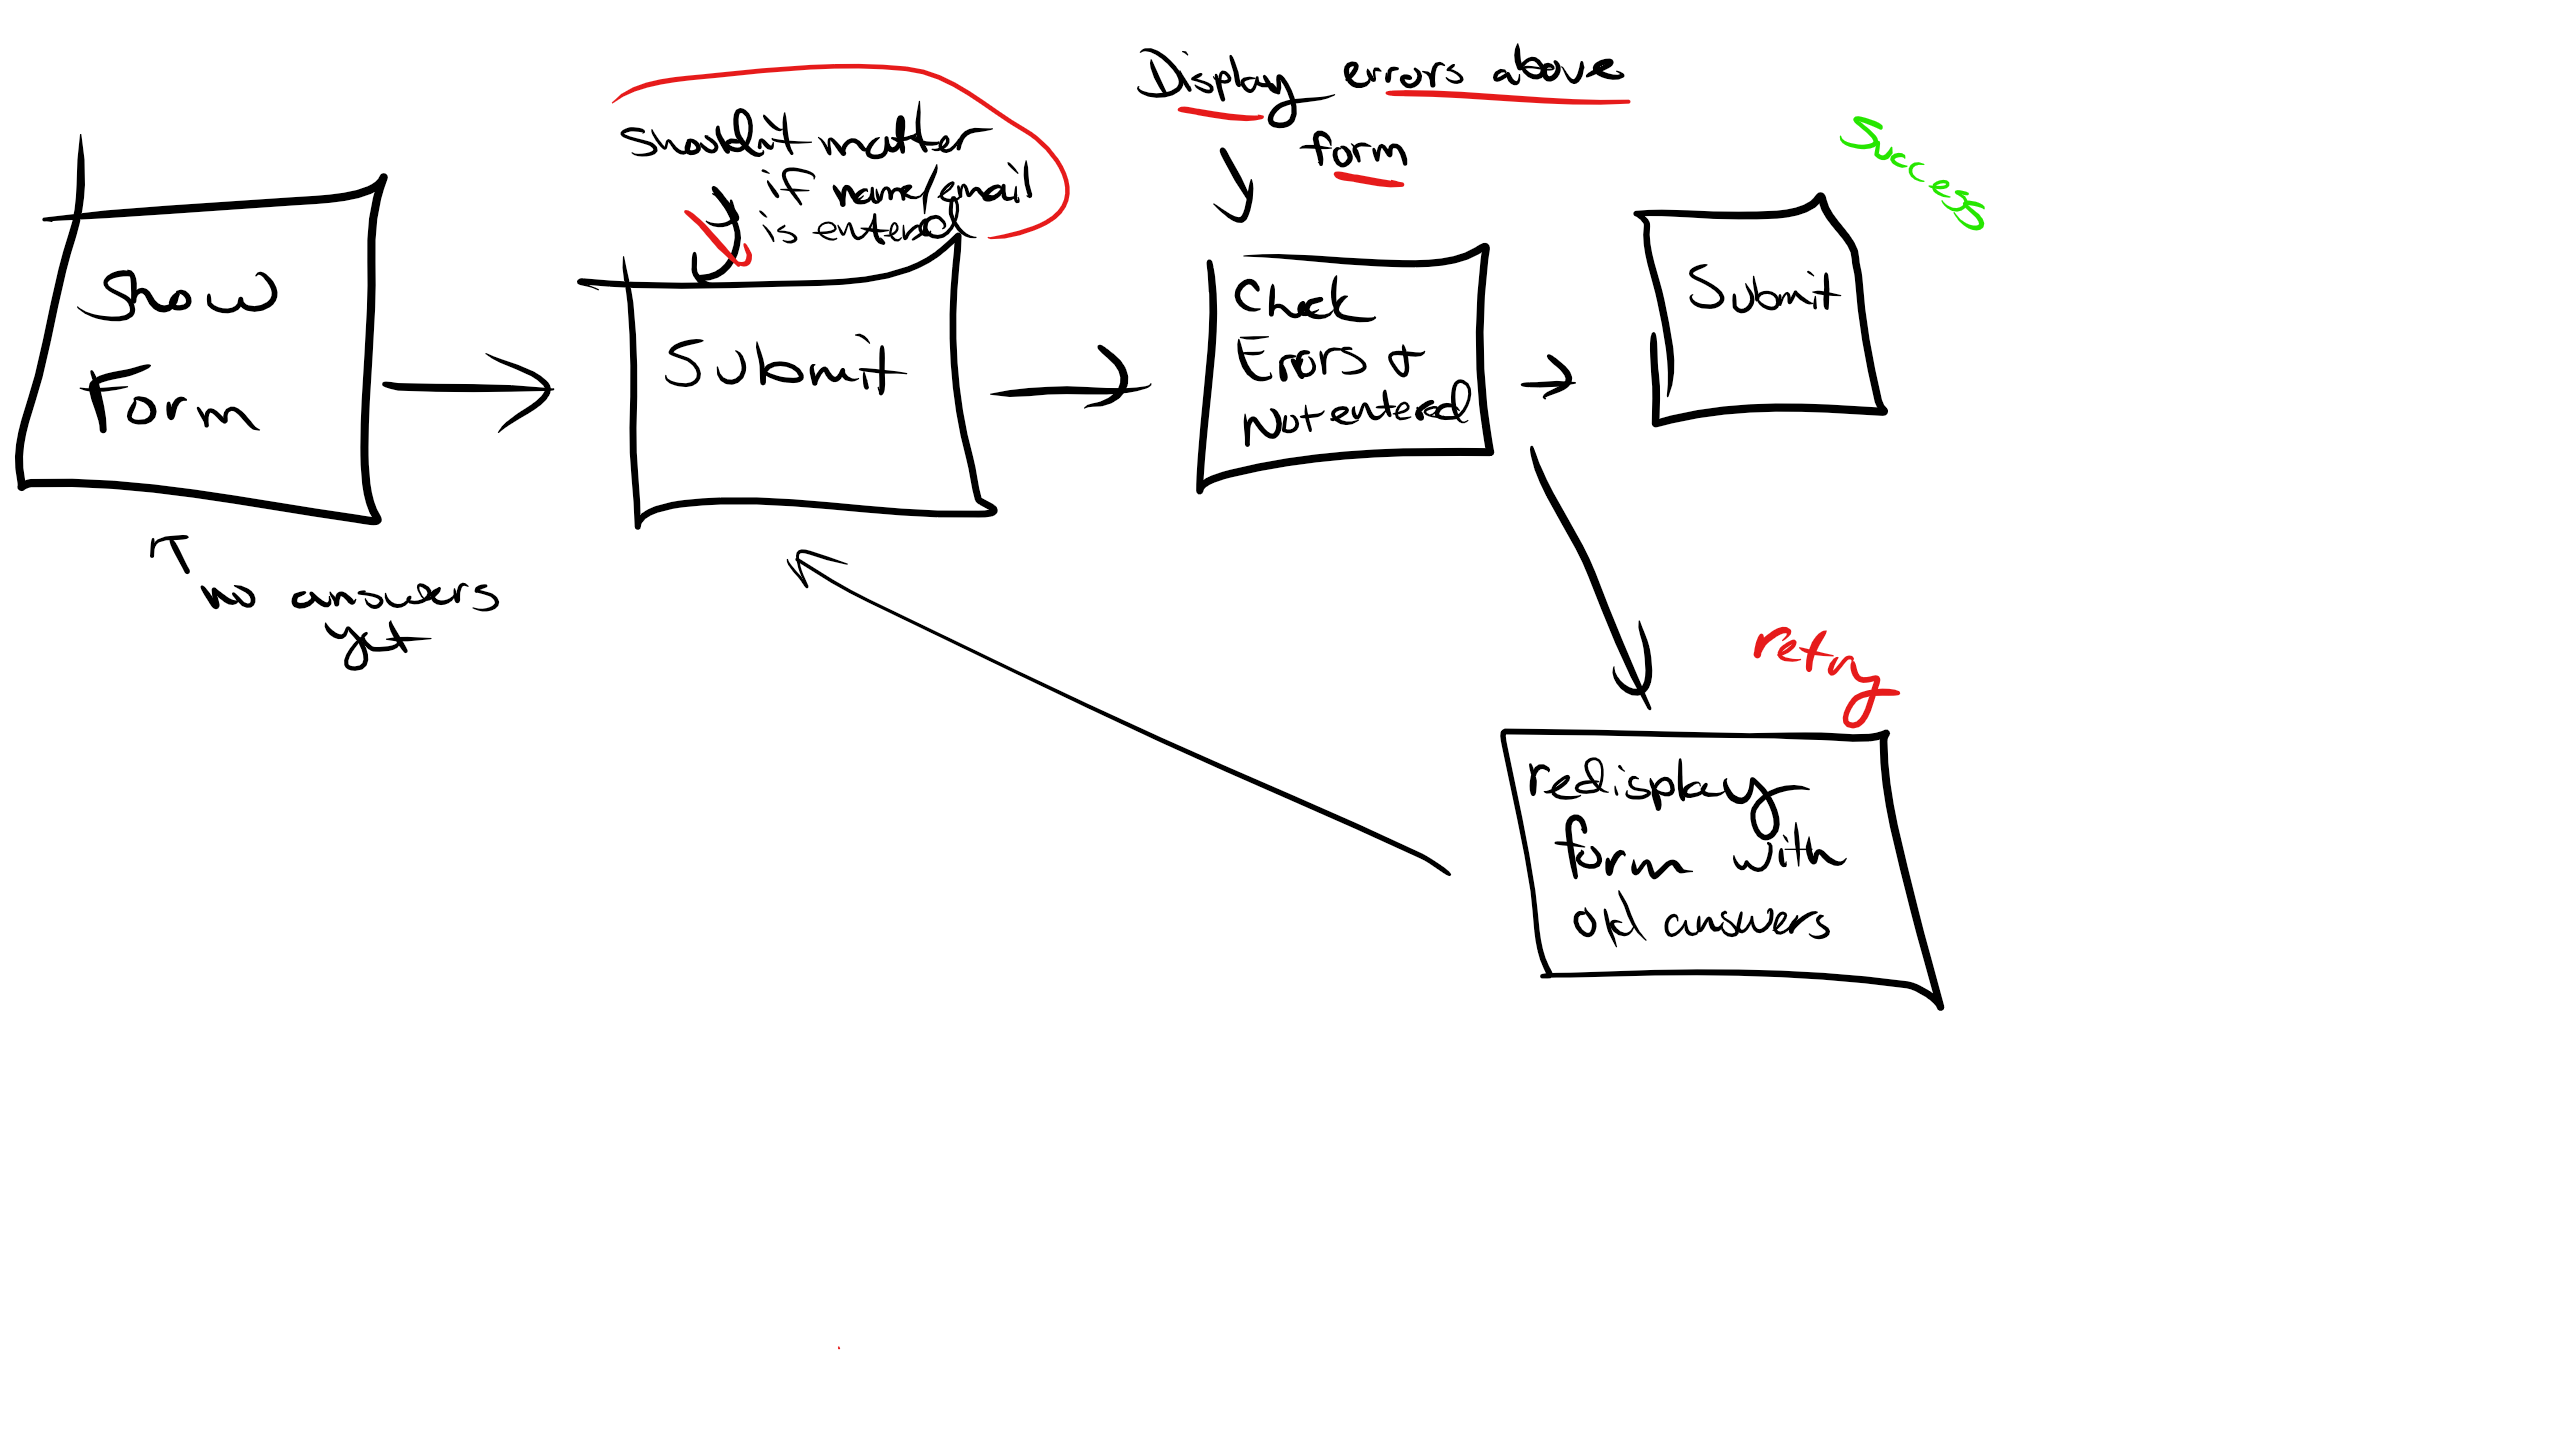 Show
Form
no answers
yet
shouldn't matter
if name/email
is entered
Submit
Display errors above
form
Check
Errors +
Not entered
Success
Submit
retry
redisplay
form with
old answers